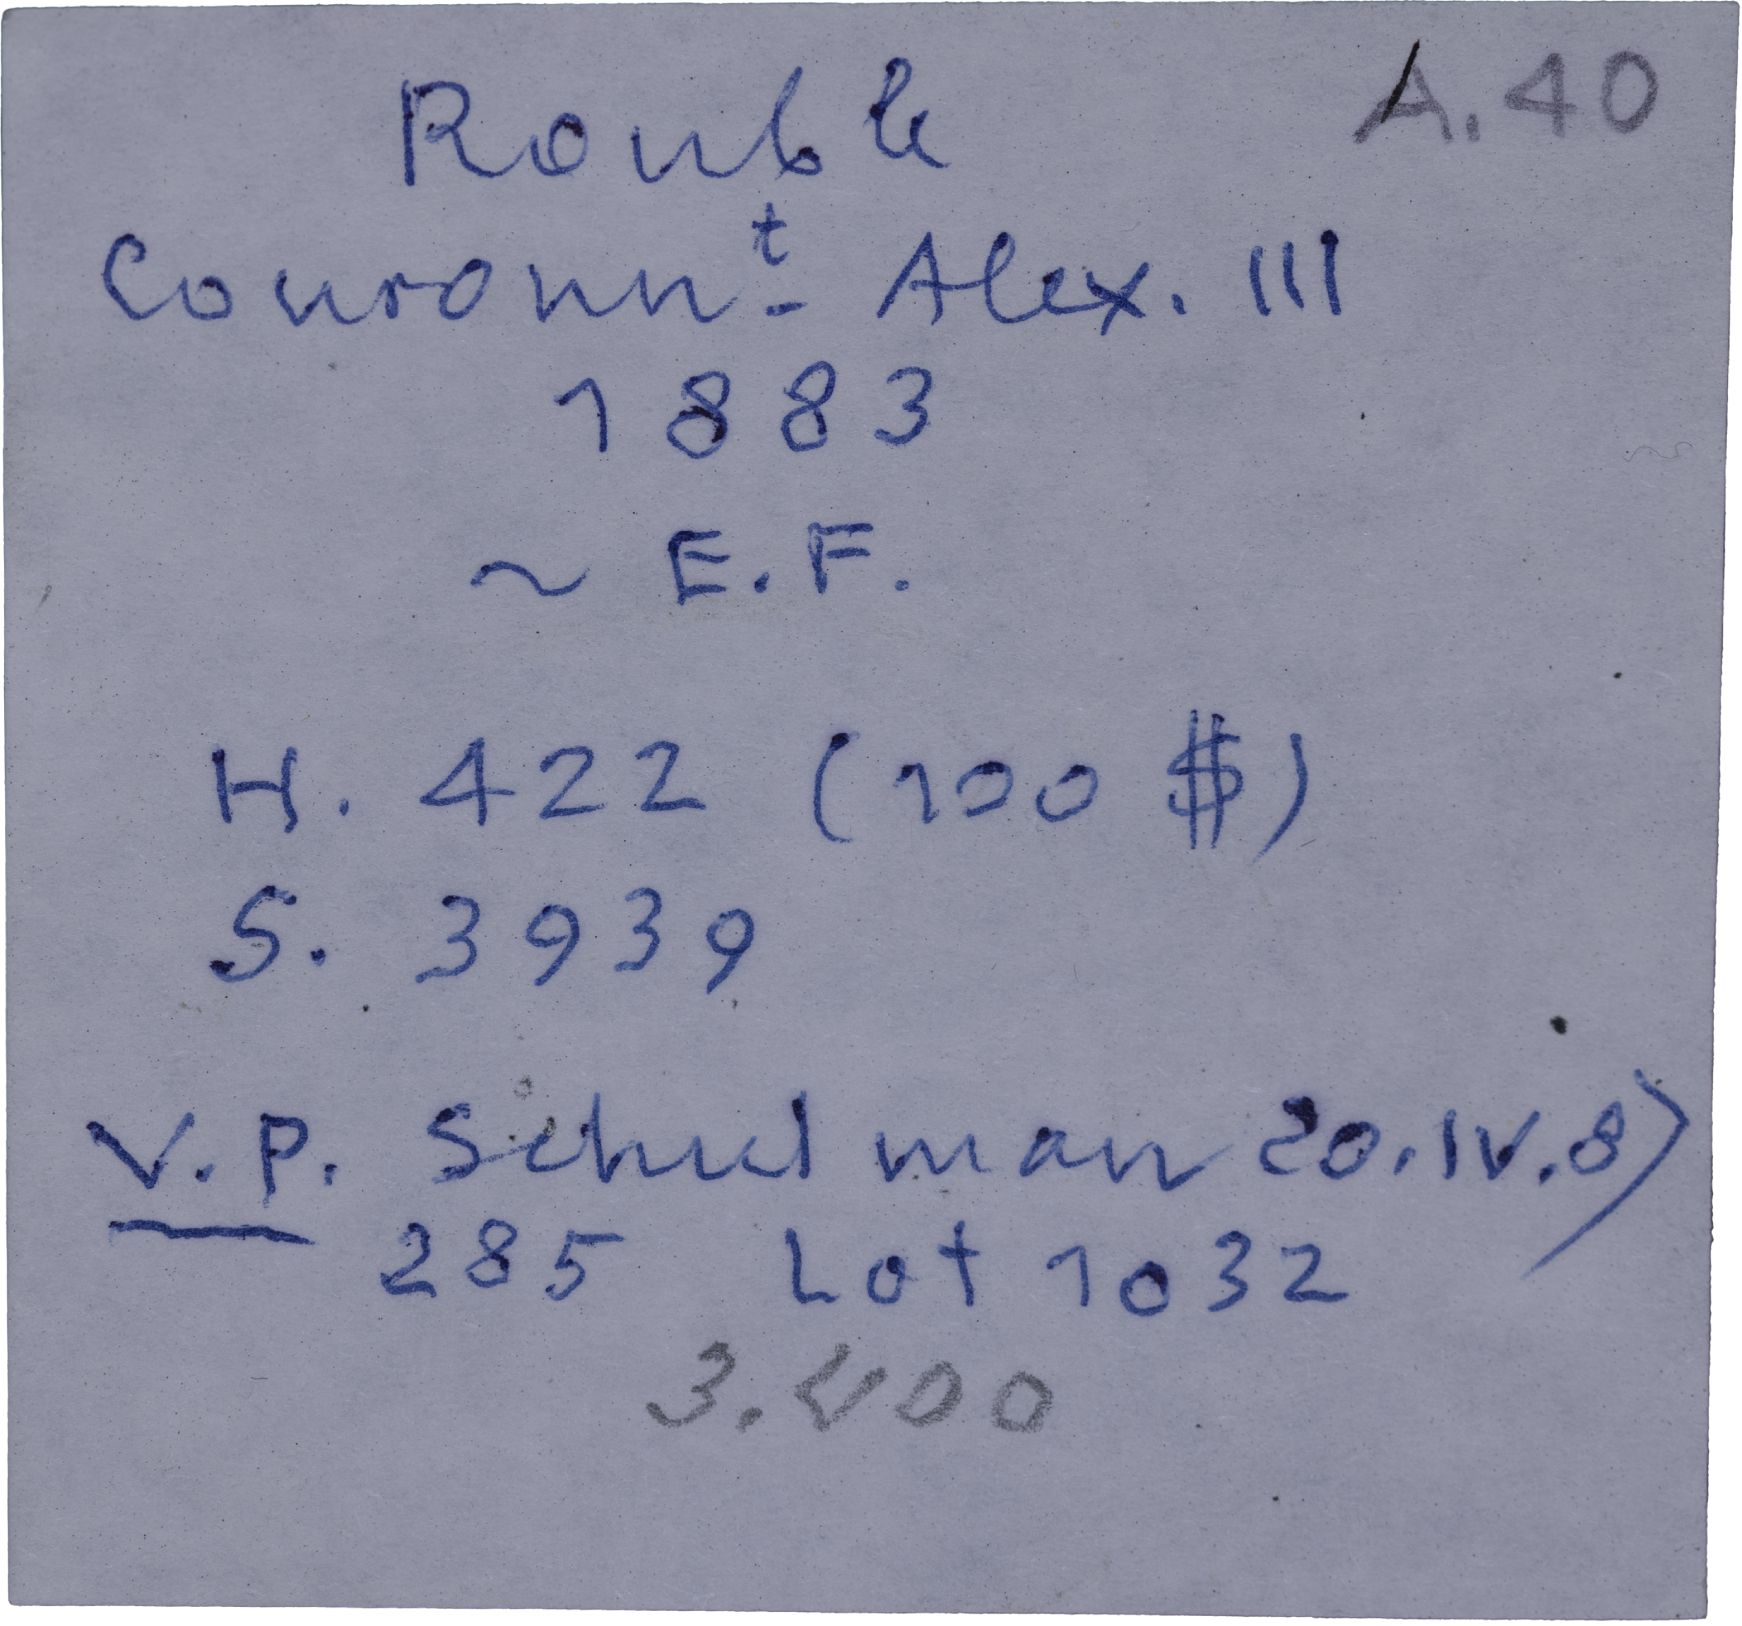 A.40
Rouble
Couronn.t Alex. III
1883
~ E.F.
H. 422 (100 $)
S. 3939
V.P. Schulman 20.IV.87
285 Lot 1032
3.400